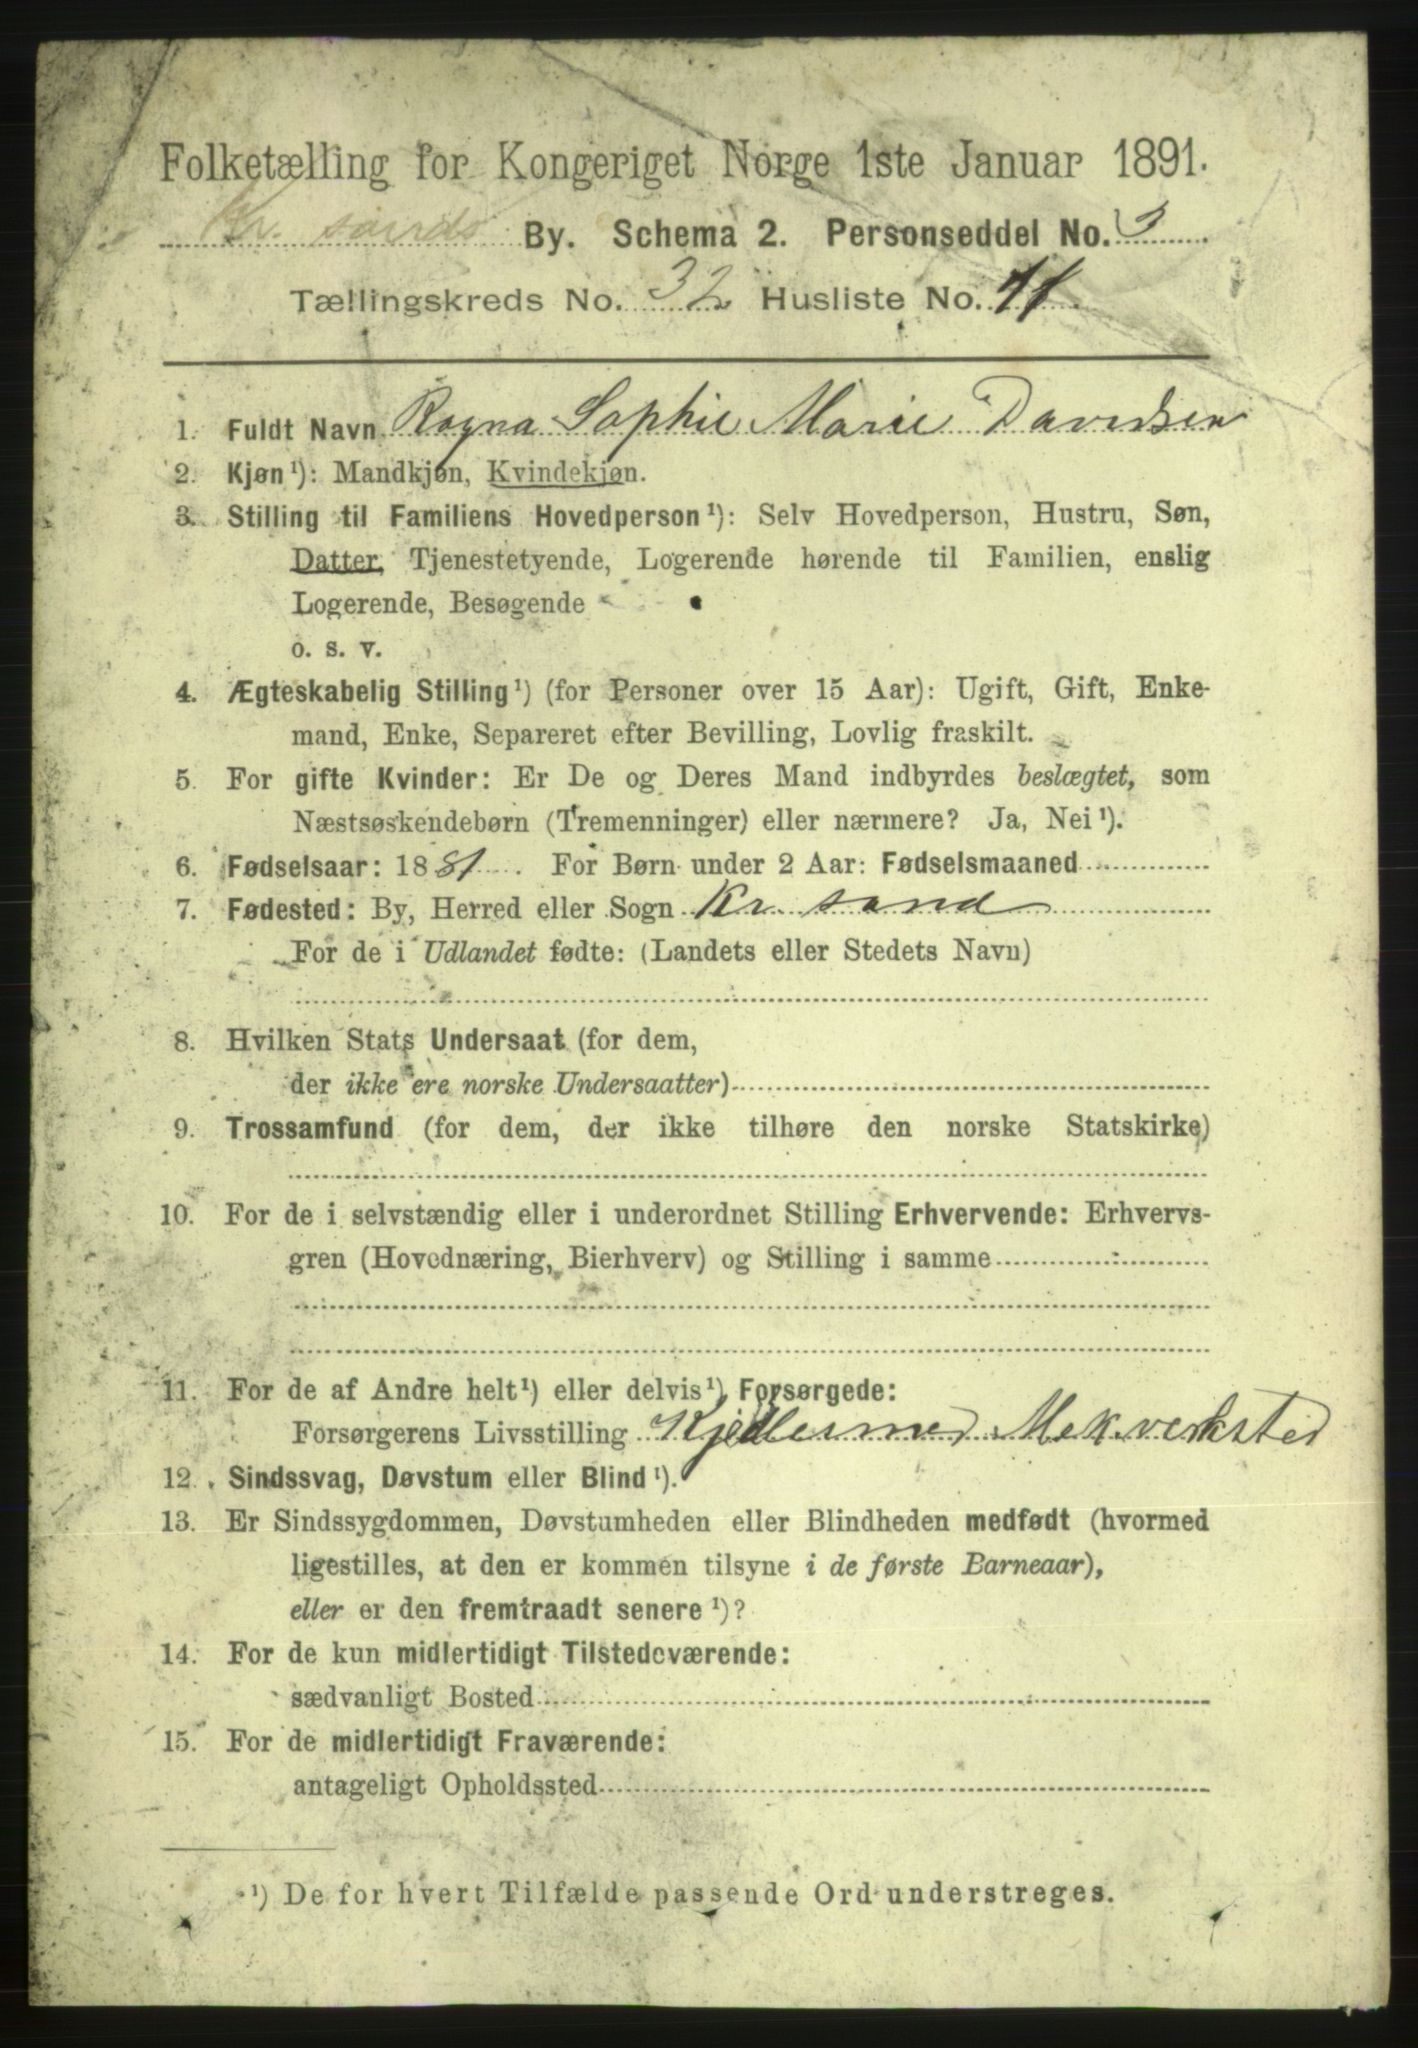 Folketælling for Kongeriget Norge 1ste Januar 1891.
Kr. sands By. Schema 2. Personseddel No. 3
Tællingskreds No. 32 Husliste No. 11.
1. Fuldt Navn Ragna Sophie Marie Davidsen
2. Kjøn¹): Mandkjøn, Kvindekjøn.
3. Stilling til Familiens Hovedperson¹): Selv Hovedperson, Hustru, Søn,
Datter, Tjenestetyende, Logerende hørende til Familien, enslig
Logerende, Besøgende
o. s. v.
4. Ægteskabelig Stilling¹) (for Personer over 15 Aar): Ugift, Gift, Enke-
mand, Enke, Separeret efter Bevilling, Lovlig fraskilt.
5. For gifte Kvinder: Er De og Deres Mand indbyrdes beslægtet, som
Næstsøskendebørn (Tremenninger) eller nærmere? Ja, Nei¹).
6. Fødselsaar: 1881. For Børn under 2 Aar: Fødselsmaaned
7. Fødested: By, Herred eller Sogn Kr. sand
For de i Udlandet fødte: (Landets eller Stedets Navn)
8. Hvilken Stats Undersaat (for dem,
der ikke ere norske Undersaatter)
9. Trossamfund (for dem, der ikke tilhøre den norske Statskirke)
10. For de i selvstændig eller i underordnet Stilling Erhvervende: Erhvervs-
gren (Hovednæring, Bierhverv) og Stilling i samme
11. For de af Andre helt¹) eller delvis¹) Forsørgede:
Forsørgerens Livsstilling Kjedlesmed Mek. verksted
12. Sindssvag, Døvstum eller Blind¹).
13. Er Sindssygdommen, Døvstumheden eller Blindheden medfødt (hvormed
ligestilles, at den er kommen tilsyne i de første Barneaar),
eller er den fremtraadt senere¹)?
14. For de kun midlertidigt Tilstedeværende:
sædvanligt Bosted
15. For de midlertidigt Fraværende:
antageligt Opholdssted
¹) De for hvert Tilfælde passende Ord understreges.